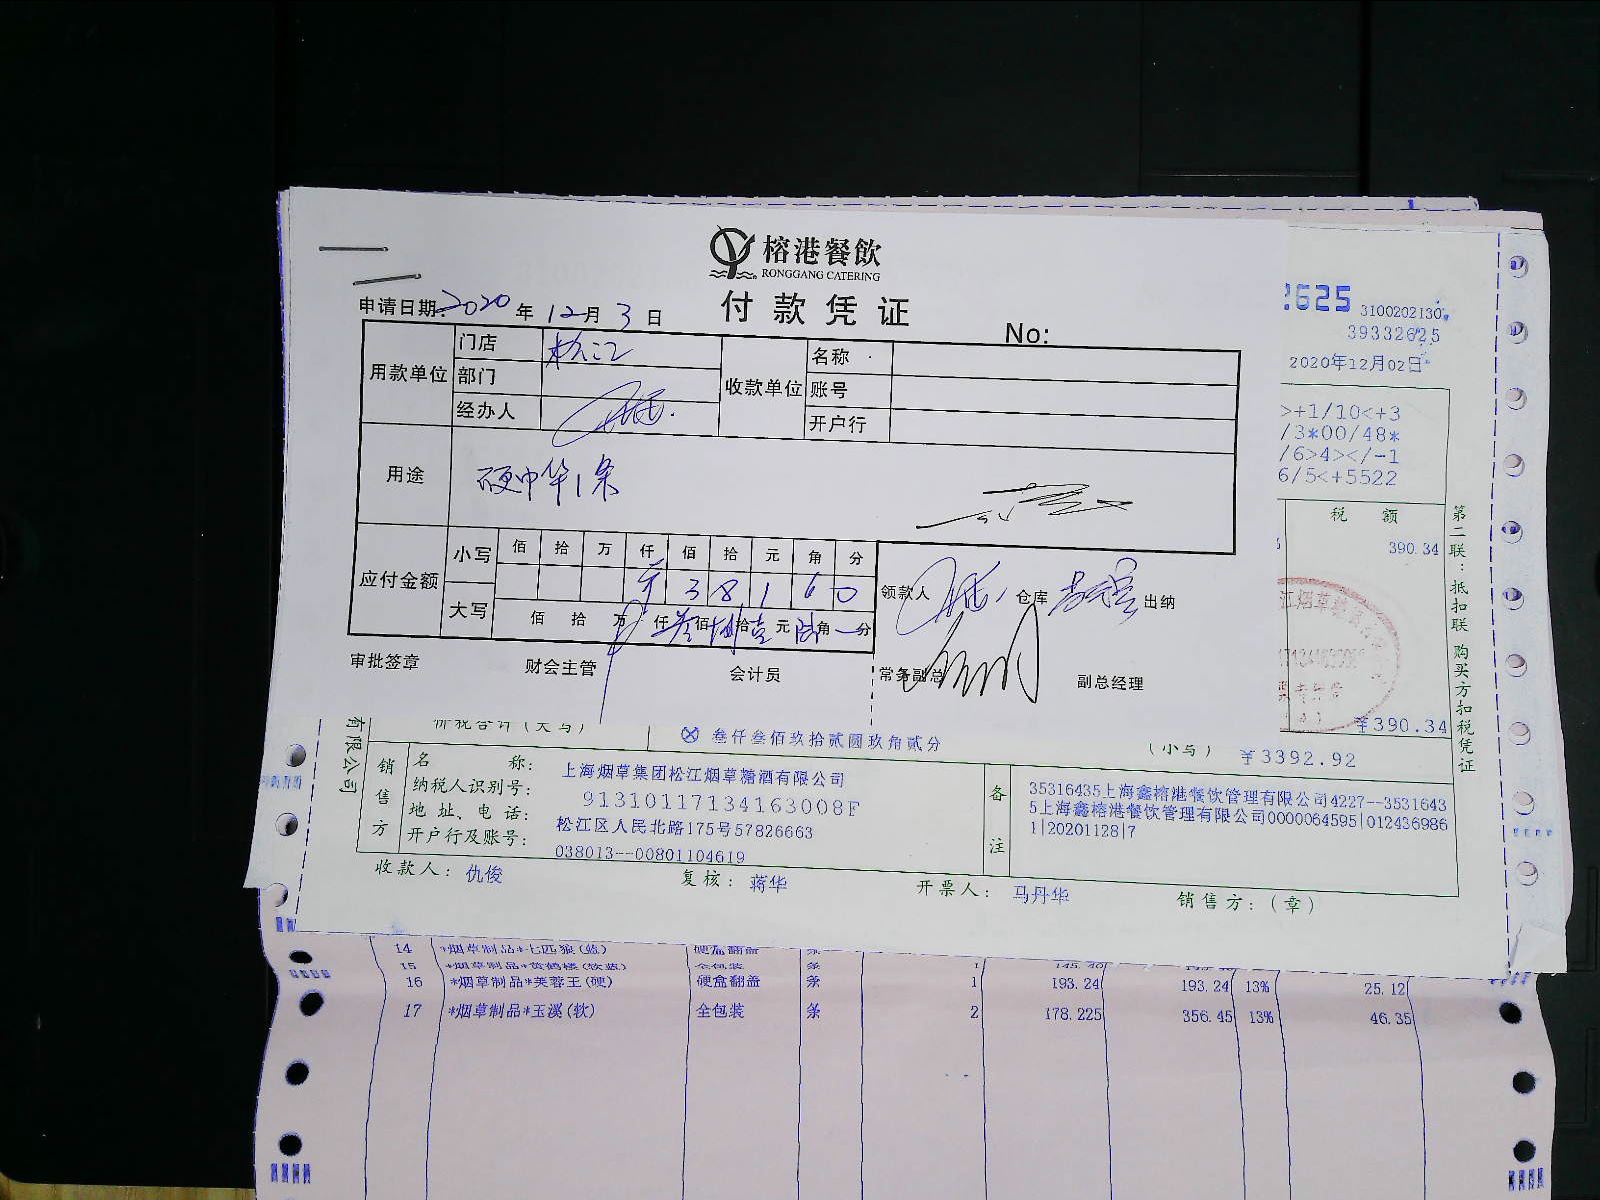 榕港餐飲
RONGGANG CATERING
付款凭证
申请日期: 2020 年 12 月 3 日
No:
用款单位 门店 松江 收款单位 名称
部门 账号
经办人 开户行
用途 硬中华1条
应付金额 小写 佰 拾 万 仟 佰 拾 元 角 分
3 8 1 6 0
大写 佰 拾 万 仟 叁佰 捌拾 壹元 陆角 分
领款人 仓库 出纳
审批签章 财会主管 会计员 常务副总 副总经理
2625 3100202130
39332625
2020年12月02日
>+1/10<+3
/3*00/48*
/6>4></-1
6/5<+5522
税 额
390.34
¥390.34
第二联：抵扣联 购买方扣税凭证
有限公司
价税合计(大写) ⊗ 叁仟叁佰玖拾贰圆玖角贰分 (小写) ¥3392.92
销售方
名 称: 上海烟草集团松江烟草糖酒有限公司
纳税人识别号: 91310117134163008F
地 址、电 话: 松江区人民北路175号57826663
开户行及账号: 038013--00801104619
备注
35316435上海鑫榕港餐饮管理有限公司4227--3531643
5上海鑫榕港餐饮管理有限公司0000064595|012436986
1|20201128|7
收款人: 仇俊 复核: 蒋华 开票人: 马丹华 销售方: (章)
14 *烟草制品*七匹狼(蓝) 硬盒翻盖 条
15 *烟草制品*黄鹤楼(软蓝) 全包装 条 1
16 *烟草制品*芙蓉王(硬) 硬盒翻盖 条 1 193.24 193.24 13% 25.12
17 *烟草制品*玉溪(软) 全包装 条 2 178.225 356.45 13% 46.35